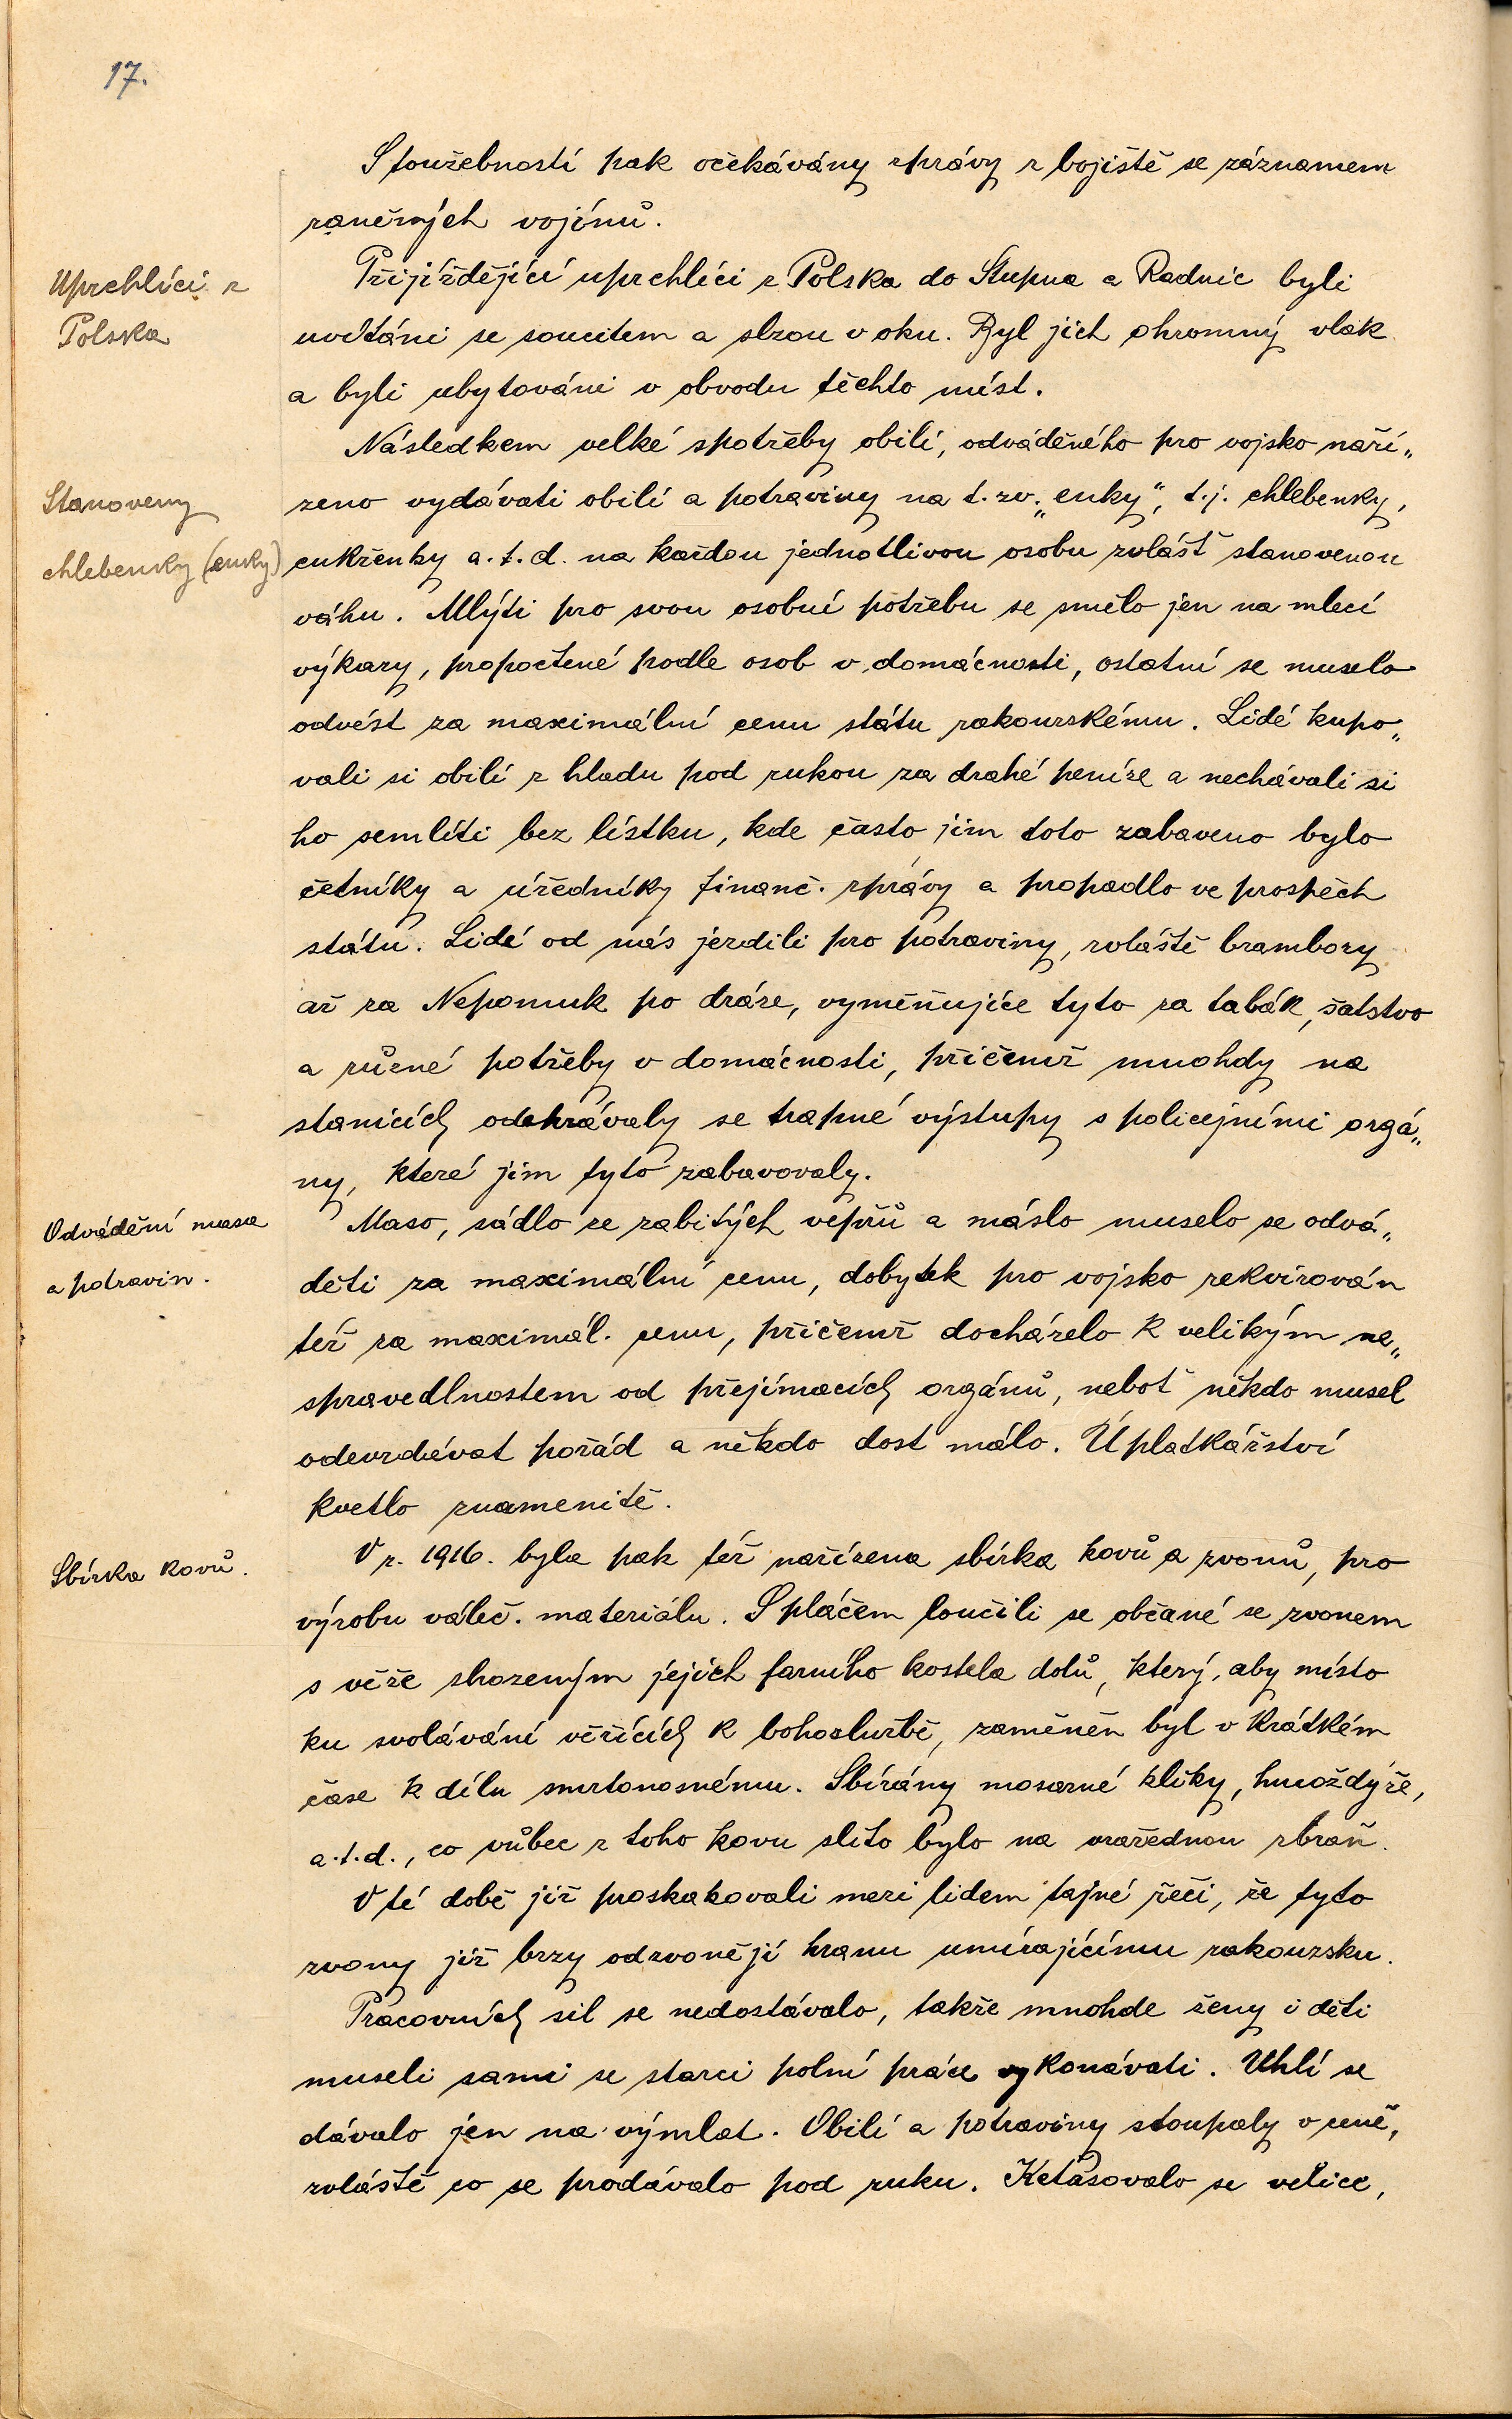 17.
S toužebností pak očekávány zprávy z bojiště se záznamem
raněných vojínů.
Uprchlíci z
Polska
Přijíždějící uprchlíci z Polska do Stupna a Radnic byli
uvítáni se soucitem a slzou v oku. Byl jich ohromný vlak
a byli ubytováni v obvodu těchto míst.
Následkem velké spotřeby obilí, odváděného pro vojsko naří„
Stanoveny
chlebenky (enky)
zeno vydávati obilí a potraviny na t. zv. „enky“, t. j. chlebenky,
cukřenky a. t. d. na každou jednotlivou osobu zvlášť stanovenou
váhu. Mlýti pro svou osobní potřebu se smělo jen na mlecí
výkazy, propočtené podle osob v domácnosti, ostatní se muselo
odvést za maximální cenu státu rakouskému. Lidé kupo„
vali si obilí z hladu pod rukou za drahé peníze a nechávali si
ho semlíti bez lístku, kde často jim toto zabaveno bylo
četníky a úředníky finanč. zprávy a propadlo ve prospěch
státu. Lidé od nás jezdili pro potraviny, zvláště brambory
až za Nepomuk po dráze, vyměňujíce tyto za tabák, šatstvo
a různé potřeby v domácnosti, přičemž mnohdy na
stanicích odehrávaly se trapné výstupy s policejními orgá„
ny, které jim tyto zabavovaly.
Odvádění masa
a potravin.
Maso, sádlo ze zabitých vepřů a máslo muselo se odvá„
děti za maximální cenu, dobytek pro vojsko rekvirován
též za maximál. cenu, přičemž docházelo k velikým ne„
spravedlnostem od přejímacích orgánů, neboť někdo musel
odevzdávat pořád a někdo dost málo. Úplatkářství
kvetlo znamenitě.
Sbírka kovů.
V r. 1916. byla pak též nařízena sbírka kovů a zvonů, pro
výrobu váleč. materiálu. S pláčem loučili se občané se zvonem
s věže shozeným jejich farního kostela dolů, který, aby místo
ku svolávání věřících k bohoslužbě, zaměněn byl v krátkém
čase k dílu smrtonosnému. Sbírány mosazné kliky, hmoždýře,
a. t. d., co vůbec z toho kovu slito bylo na vražednou zbraň.
V té době již proskakovali mezi lidem tajné řeči, že tyto
zvony již brzy odzvonějí hranu umírajícímu rakouzsku.
Pracovních sil se nedostávalo, takže mnohde ženy i děti
museli sami se starci polní práce vykonávati. Uhlí se
dávalo jen na výmlat. Obilí a potraviny stoupaly v ceně,
zvláště co se prodávalo pod ruku. Keťasovalo se velice,